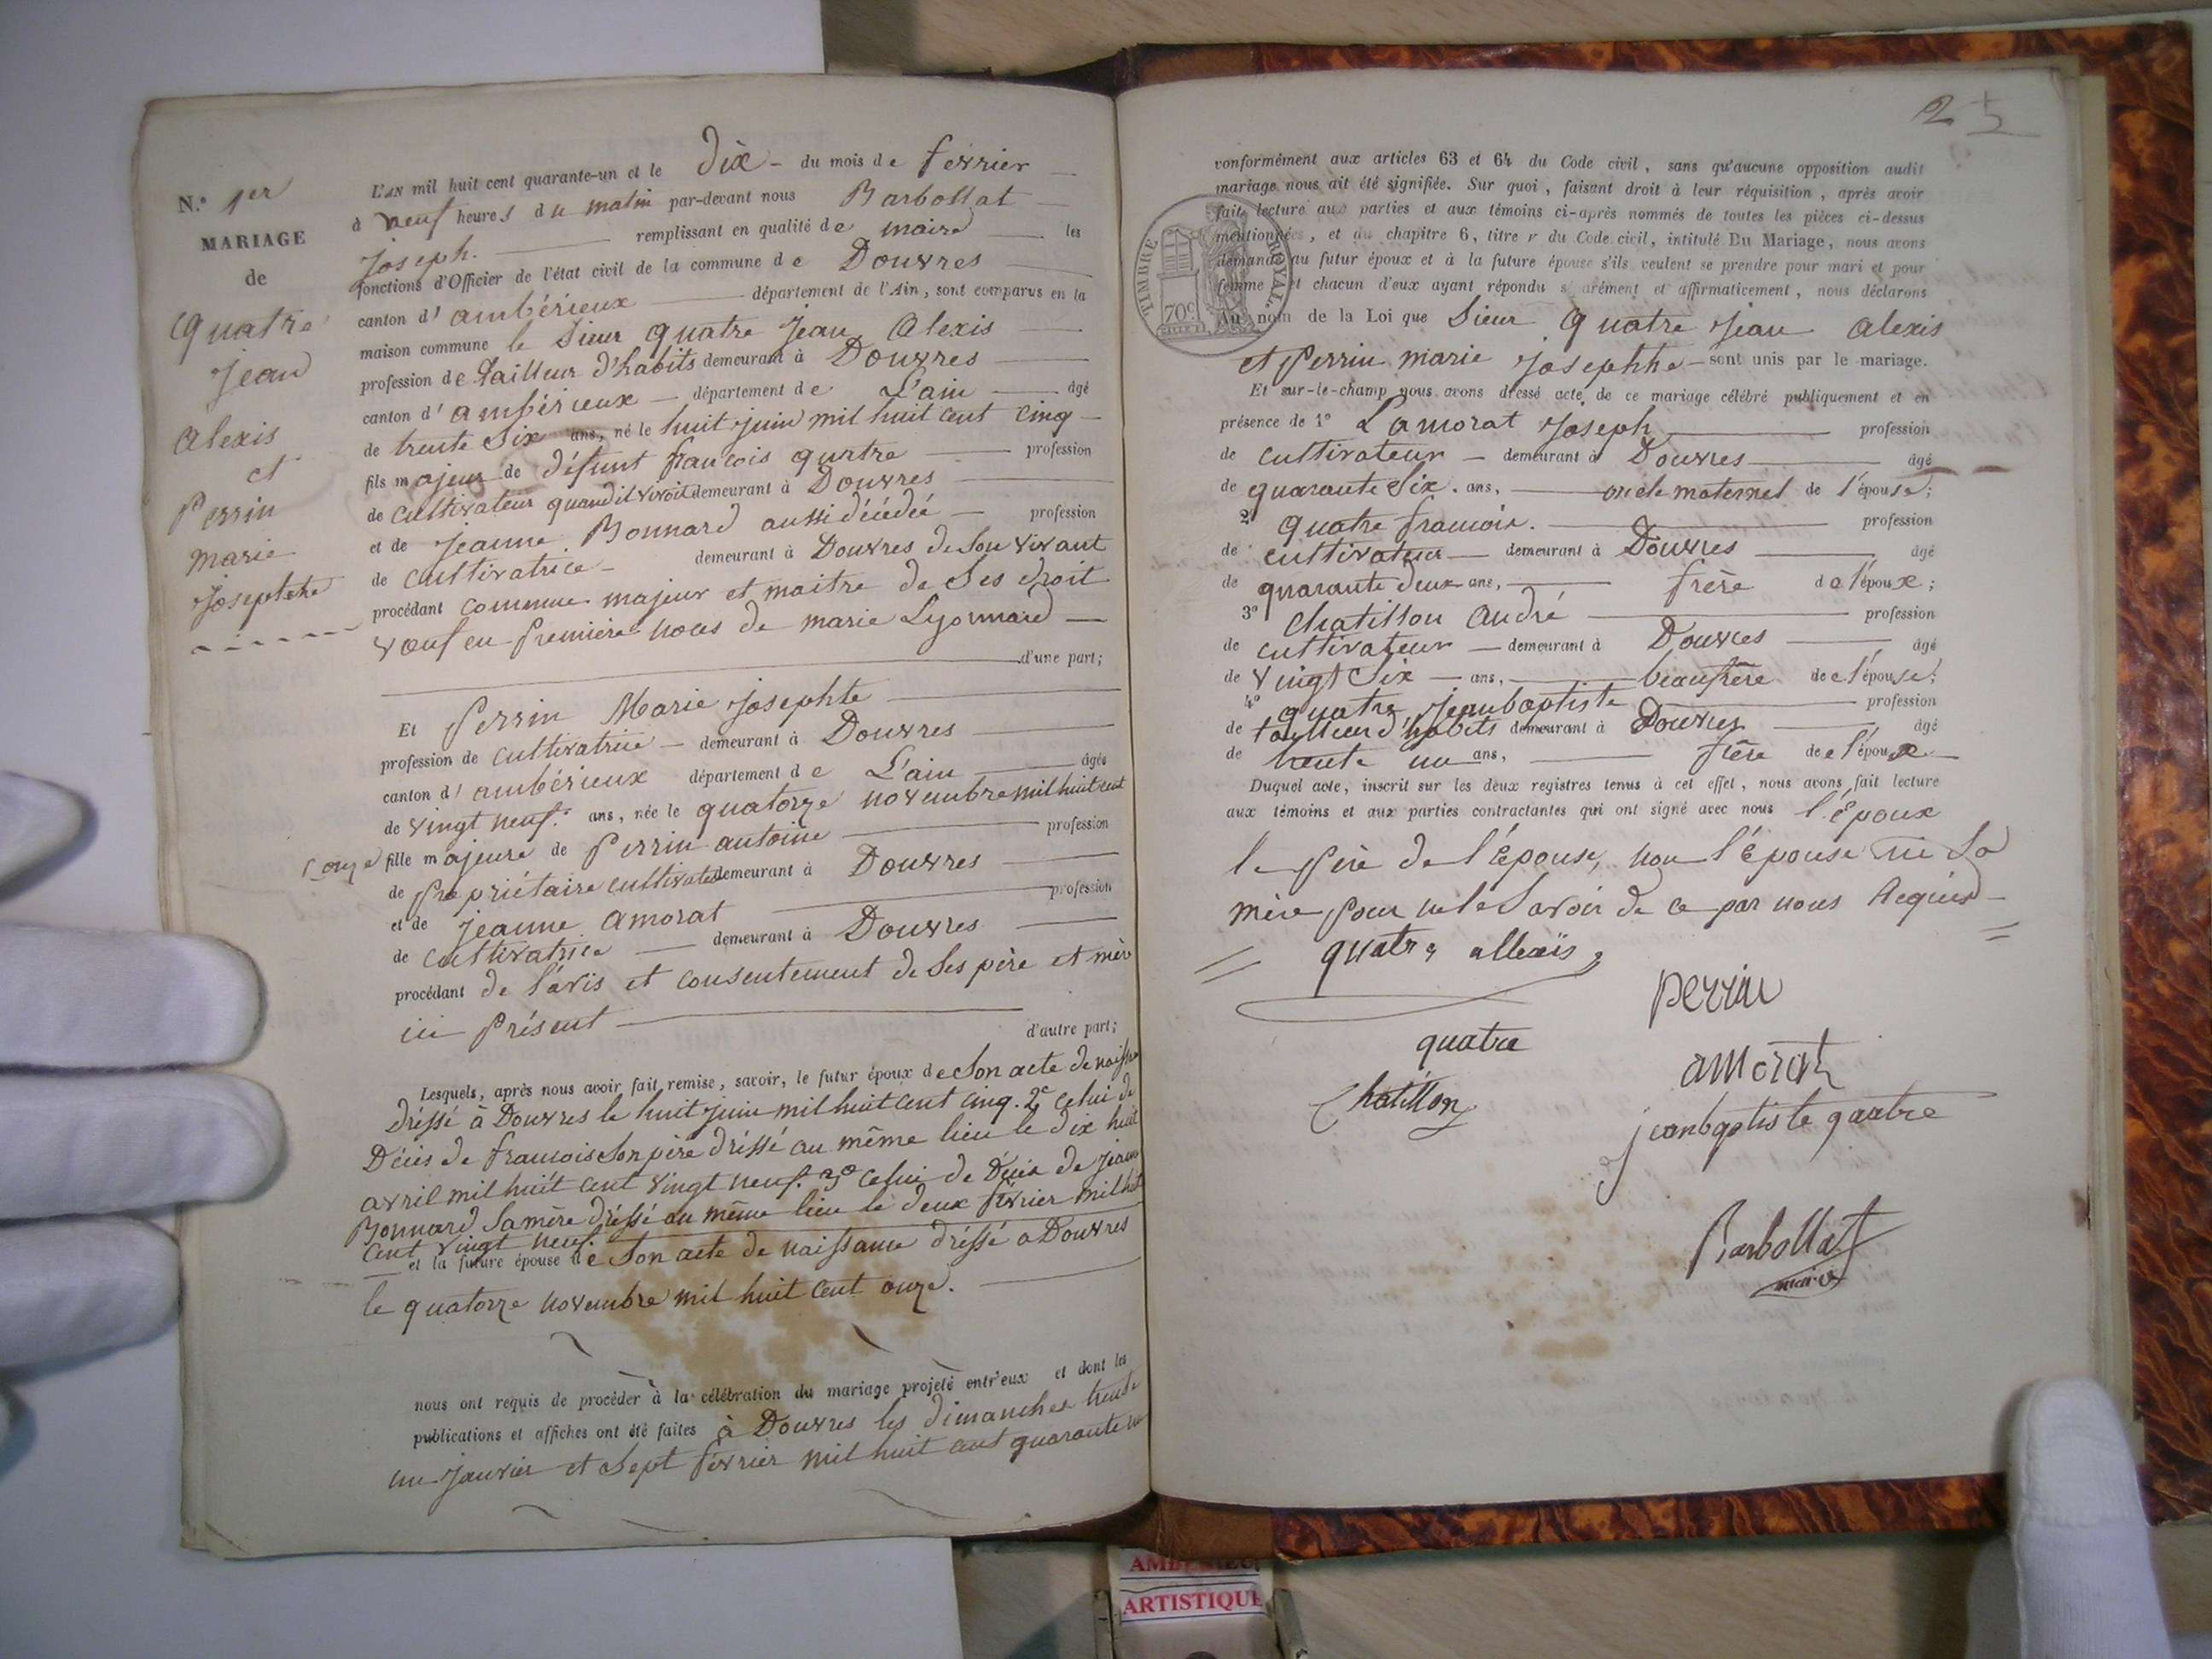 N.º 1er
MARIAGE
de
Quatre
Jean
Alexis
et
Perrin
Marie
Josephthe
L'AN mil huit cent quarante-un et le Dix du mois de février
à neuf heures du matin par-devant nous Barbollat
Joseph. remplissant en qualité de maire les
fonctions d'Officier de l'état civil de la commune de Douvres
canton d'ambérieux département de l'Ain, sont comparus en la
maison commune le Sieur Quatre Jean Alexis
profession de tailleur d'habits demeurant à Douvres
canton d'ambérieux département de L'ain âgé
de trente Six ans, né le huit juin mil huit cent cinq
fils majeur de défunt francois quatre profession
de cultivateur quand il vivoit demeurant à Douvres
et de Jeanne Bonnard aussi décédée profession
de cultivatrice demeurant à Douvres de Son vivant
procédant comme majeur et maitre de Ses droit
veuf en première noces de marie Lyonnard
d'une part;
Et Perrin Marie Josephte
profession de cultivatrice demeurant à Douvres
canton d'ambérieux département de L'ain âgée
de vingt neuf ans, née le quatorze novembre mil huit cent
onze fille majeure de Perrin antoine profession
de propriétaire cultivateur demeurant à Douvres
et de jeanne amorat profession
de cultivatrice demeurant à Douvres
procédant de l'avis et consentement de Ses père et mère
ici Présent
d'autre part;
Lesquels, après nous avoir fait remise, savoir, le futur époux de Son acte de naissance
dréssé à Douvres le huit juin mil huit cent cinq. 2e celui de
Décès de francois Son père dréssé au même lieu le dix huit
avril mil huit cent vingt neuf. 3e celui de Décès de jeanne
Bonnard Sa mère dréssé au même lieu le deux février mil huit
cent vingt neuf
et la future épouse de Son acte de naissance dréssé a Douvres
le quatorze novembre mil huit cent onze.
nous ont requis de procéder à la célébration du mariage projeté entr'eux et dont les
publications et affiches ont été faites à Douvres les dimanches trente
un Janvier et Sept février mil huit cent quarante un
25
conformément aux articles 63 et 64 du Code civil, sans qu'aucune opposition audit
mariage nous ait été signifiée. Sur quoi, faisant droit à leur réquisition, après avoir
fait lecture aux parties et aux témoins ci-après nommés de toutes les pièces ci-dessus
mentionnées, et du chapitre 6, titre v du Code civil, intitulé Du Mariage, nous avons
demandé au futur époux et à la future épouse s'ils veulent se prendre pour mari et pour
femme et chacun d'eux ayant répondu séparément et affirmativement, nous déclarons
TIMBRE ROYAL.
70c.
Au nom de la Loi que Sieur Quatre Jean Alexis
et Perrin marie Josephthe sont unis par le mariage.
Et sur-le-champ nous avons dressé acte de ce mariage célébré publiquement et en
présence de 1º Lamorat Joseph profession
de cultivateur demeurant à Douvres âgé
de quarante Six ans, oncle maternel de l'épouse;
2º Quatre francois. profession
de cultivateur demeurant à Douvres âgé
de quarante deux ans, frère de l'époux;
3º Chatillon André profession
de cultivateur demeurant à Douvres âgé
de vingt Six ans, beaufrère de l'épouse;
4º quatre Jean baptiste profession
de tailleur d'habits demeurant à Douvres âgé
de trente un ans, frère de l'époux
Duquel acte, inscrit sur les deux registres tenus à cet effet, nous avons fait lecture
aux témoins et aux parties contractantes qui ont signé avec nous l'époux
le Père de l'Epouse, non l'épouse ni Sa
mère pour ne le Savoir de ce par nous Requis
quatre allexis
Perrin
quatre
amorat
Chatillon
jeanbaptiste quatre
Barbollat
maire
ARTISTIQUE